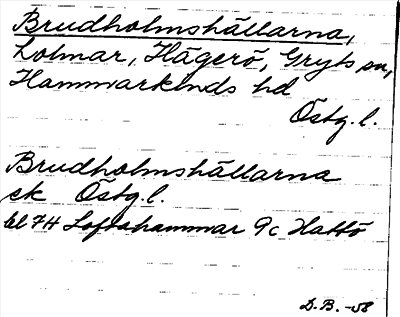 Brudholmshällarna,
Lolmar, Hägerö, Gryts sn,
Hammarkinds hd
Östg. l.
Brudholmshällarna
sk Östg. l.
bl 7H Loftahammar 9c Hattö
D. B. -58